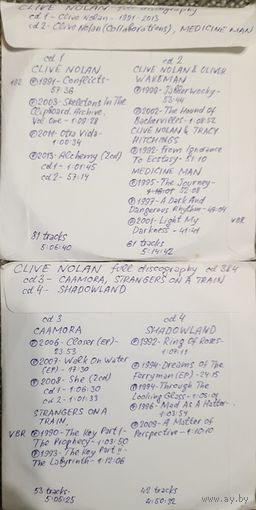 CLIVE NOLAN full discography
cd 1 - Clive Nolan - 1991-2013
cd 2 - Clive Nolan (collaborations), MEDICINE MAN
cd 1
CLIVE NOLAN
192
1991 - Conflicts -
57:36
2003 - Skeletons In The
Cupboard. Archive,
Vol. One - 1:09:28
2011 - Otra Vida -
1:00:34
2013 - Alchemy (2cd)
cd 1 - 1:01:45
cd 2 - 57:14
31 tracks
5:06:40
cd 2
CLIVE NOLAN & OLIVER
WAKEMAN
1999 - Jabberwocky -
53:44
2002 - The Hound Of
Baskervilles - 1:08:52
CLIVE NOLAN & TRACY
HITCHINGS
1992 - From Ignorance
To Ecstasy - 51:10
MEDICINE MAN
1995 - The Journey -
52:08
1997 - A Dark And
Dangerous Rhythm - 49:04
2001 - Light My
VBR
Darkness - 41:41
61 tracks
5:14:42
CLIVE NOLAN full discography cd 3&4
cd 3 - CAAMORA, STRANGERS ON A TRAIN
cd 4 - SHADOWLAND
cd 3
CAAMORA
2006 - Closer (EP) -
23:53
2007 - Walk On Water
(EP) - 17:30
2008 - She (2cd)
cd 1 - 1:06:30
cd 2 - 1:01:33
STRANGERS ON A
TRAIN
VBR
1990 - The Key Part I -
The Prophecy - 1:03:50
1993 - The Key Part II -
The Labyrinth - 1:12:06
53 tracks -
5:05:25
cd 4
SHADOWLAND
1992 - Ring Of Roses -
1:07:11
1994 - Dreams Of The
Ferryman (EP) - 24:15
1994 - Through The
Looking Glass - 1:05:01
1996 - Mad As A Hatter -
1:03:54
2009 - A Matter Of
Perspective - 1:10:10
42 tracks -
4:50:32
www.ay.by